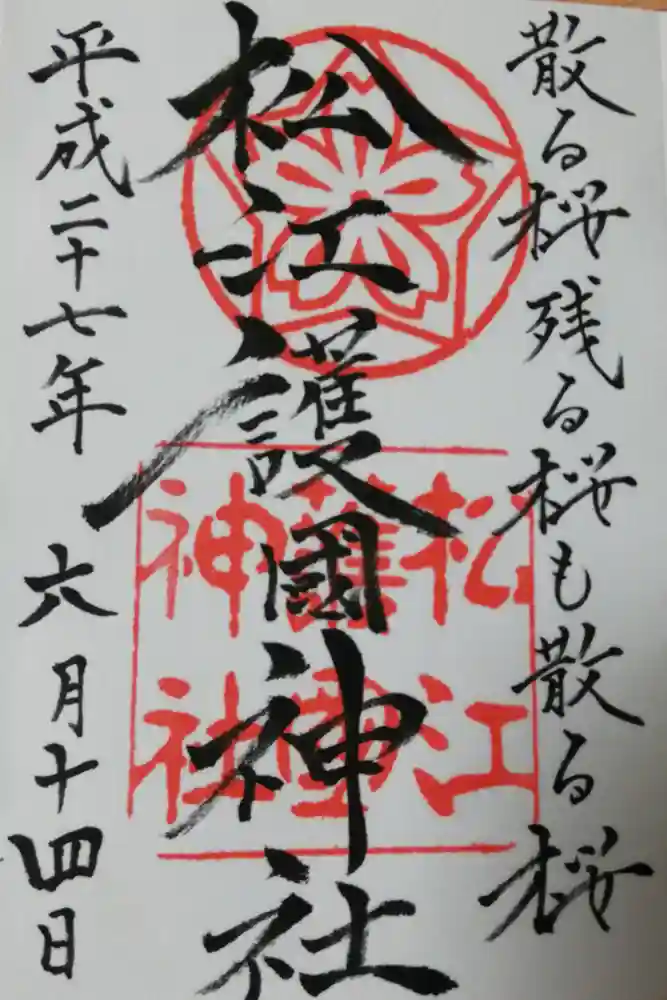 散る桜残る桜も散る桜
松江護國神社
松江
護國
神社
平成二十七年 六月十四日